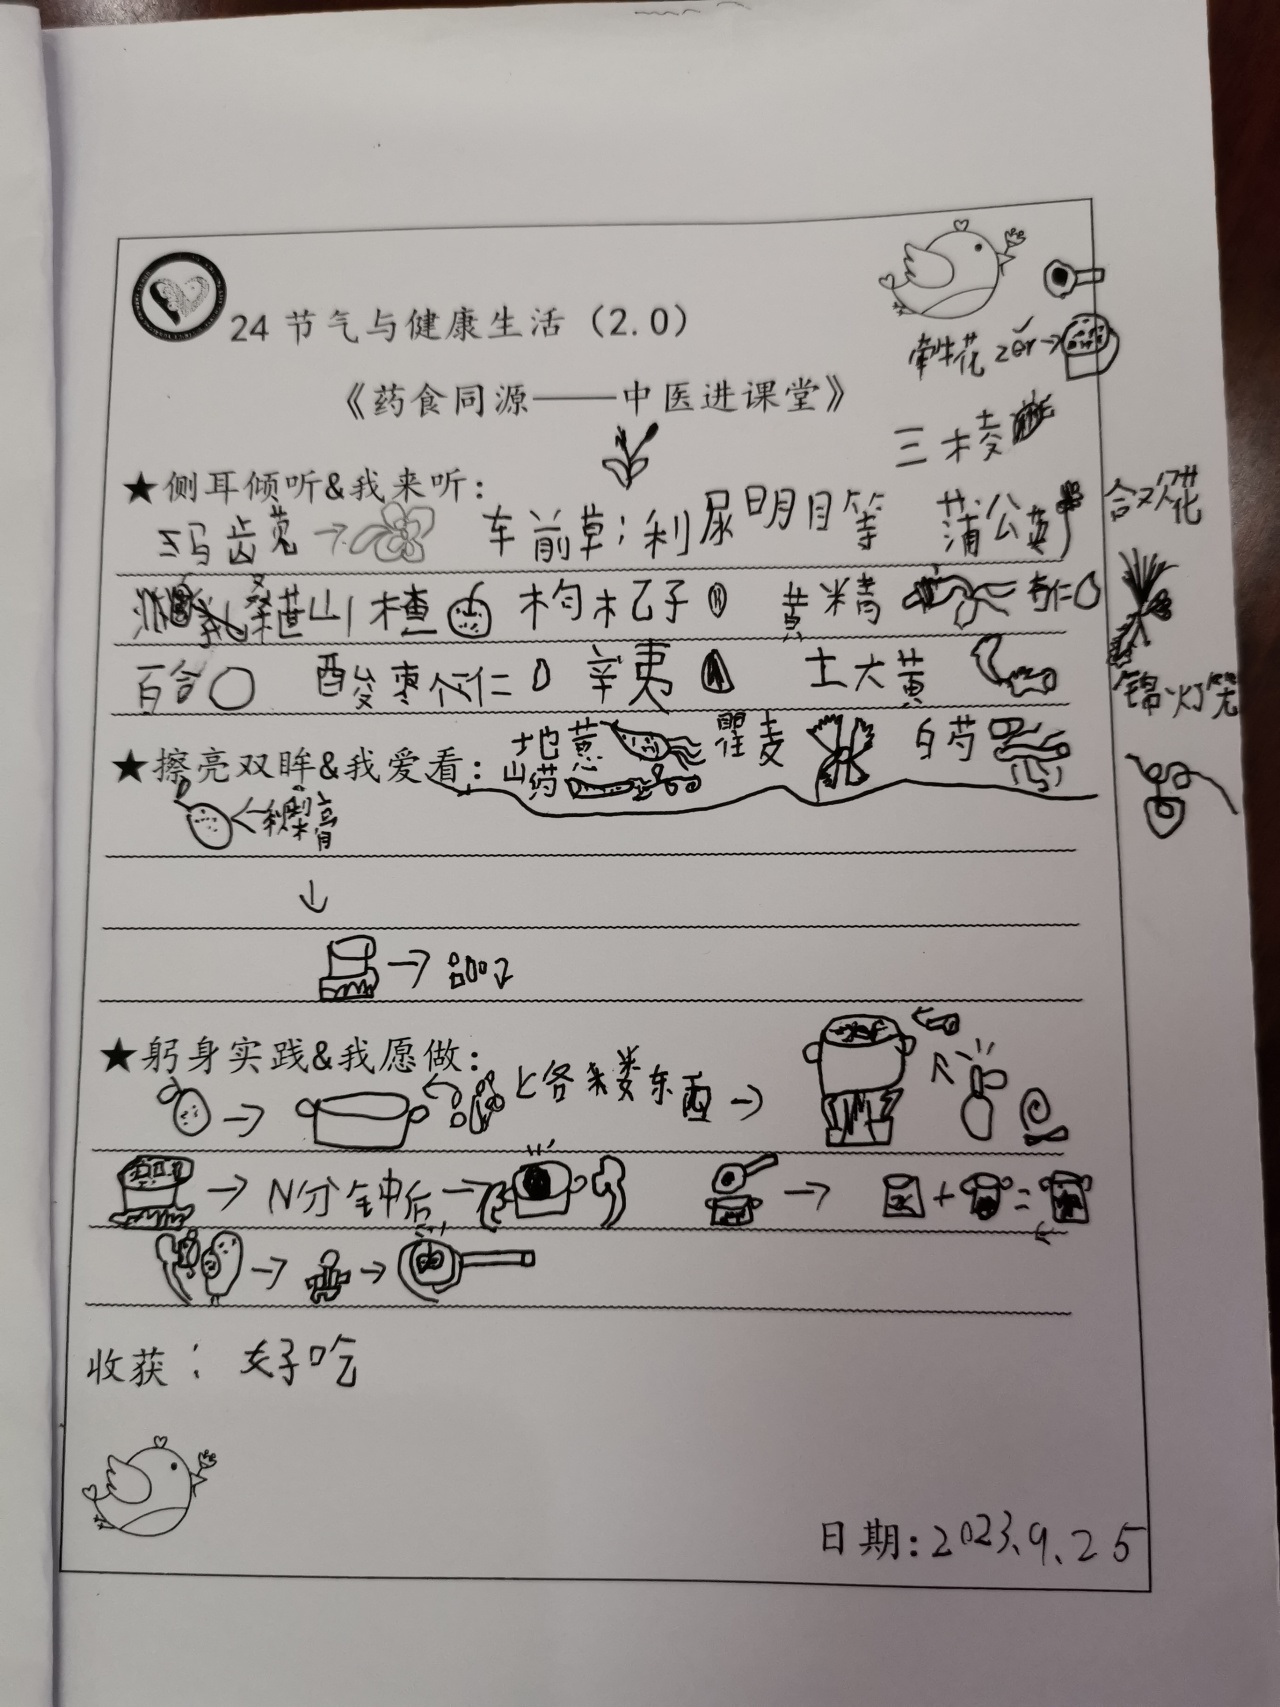 24 节气与健康生活（2.0）
牵牛花 zǐ →
《药食同源——中医进课堂》
三棱
★侧耳倾听&我来听：
马齿苋→ 车前草：利尿明目等 蒲公英 合欢花
山楂 枸杞子 黄精 杏仁
百合 酸枣仁 辛夷 土大黄 锦灯笼
★擦亮双眸&我爱看： 地黄 瞿麦 白芍
山药
梨膏
↓
→
★躬身实践&我愿做：
→ 东西→
→ N分钟后→ → + =
→ →
收获： 好吃
日期：2023.9.25